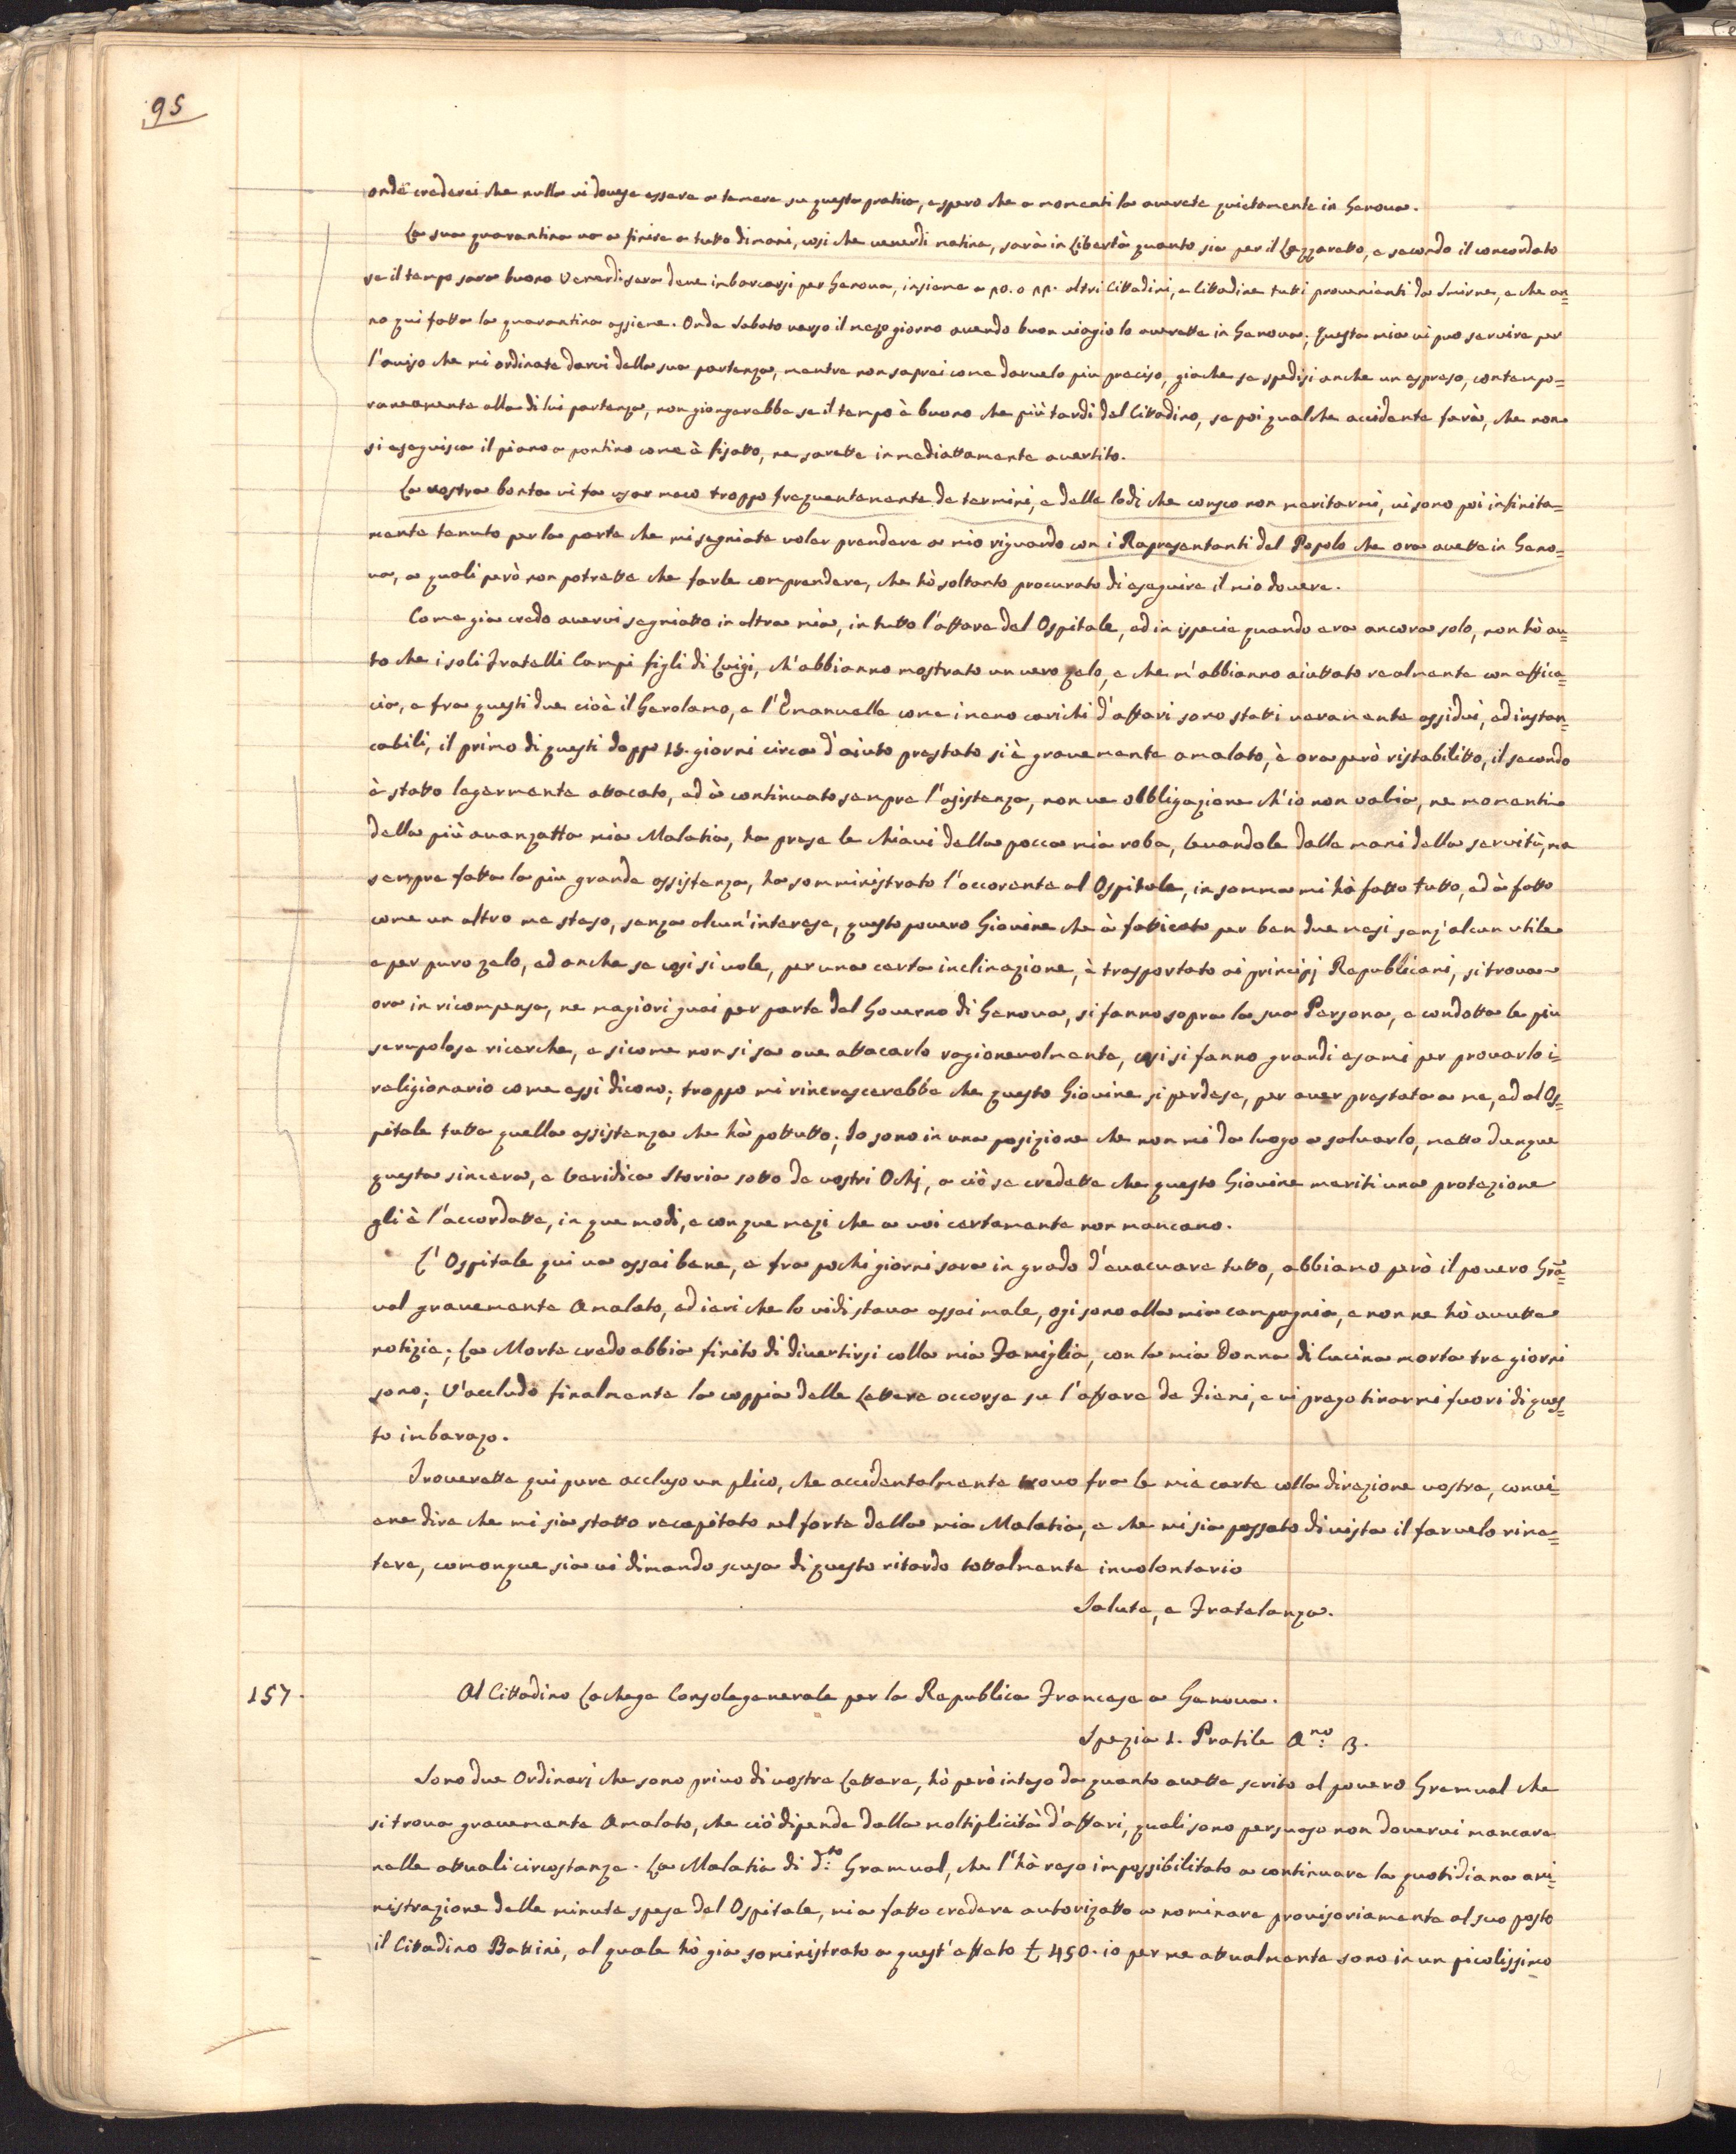 95
onde crederei che nulla vi dovesse essere a temere su questa pratica, e spero che a momenti la averete quietamente in Genova.
La sua quarantina va a finire a tutto dimani, così che venerdi matina, sarà in Libertà quanto sia per il Lazzaretto, e secondo il concordato
se il tempo sara buono Venerdi sera deve imbarcarsi per Genova, insieme a 10. o 12. altri Cittadini, e Cittadine tutti provenienti da Smirne, e che an=
no qui fatta la quarantina assieme. Onde Sabato verso il mezo giorno avendo buon viagio lo averette in Genova; Questa mia vi puo servire per
l'aviso che mi ordinate darvi della sua partenza, mentre non saprei come darvelo più preciso, giache se spedisi anche un espreso, contempo=
raneamente alla di lui partenza, non giongerebbe se il tempo è buono che più tardi del Cittadino, se poi qualche accidente farà, che non
si eseguisca il piano a pontino come è fisatto, ne sarette inmediattamente avertito.
La vostra bonta vi fa usar meco troppo frequentemente de termini, e delle lodi che conosco non meritarmi, vi sono poi infinita=
mente tenuto per la parte che mi segniate voler prendere a mio riguardo con i Rapresentanti del Popolo che ora avette in Geno=
va, a quali però non potrette che farle comprendere, che hò soltanto procurato di eseguire il mio dovere.
Come gia credo avervi segniatto in altra mia, in tutto l'affare del Ospitale, ed in ispecie quando era ancora solo, non hò au=
to che i soli Fratelli Campi figli di Luigi, ch'abbianno mostrato un vero zelo, e che m'abbianno aiuttato realmente con effica=
cia, e fra questi due cioè il Gerolamo, e l'Emanuelle come i meno carichi d'affari sono statti veramente assidui, ed instan=
cabili, il primo di questi doppo 15. giorni circa d'aiuto prestato si è gravemente amalato, è ora però ristabilitto, il secondo
è statto legermente attacato, ed à continuato sempre l'asistenza, non ve obbligazione ch'io non vabia, ne momenti
della più avanzatta mia Malatia, ha prese le chiavi della pocca mia roba, levandole dalle mani della servitù, ma
sempre fatta la più grande assistenza, ha somministrato l'accorente al Ospitale, in somma mi hà fatto tutto, ed à fatto
come un altro me steso, senza alcun'interese, questo povero Giovine che à fatticato per ben due mesi senz'alcun utile
e per puro zelo, ed anche se cosi si vole, per una certa inclinazione, è trasportato ai principj Republicani, si trova
ora in ricompensa, ne magiori guai per parte del Governo di Genova, si fanno sopra la sua Persona, e condotta le più
scrupolose ricerche, e sicome non si sa ove attacarlo ragionevolmente, cosi si fanno grandi esami per provarlo i=
religionario come essi dicono; troppo mi rincrescerebbe che questo Giovine si perdese, per aver prestata a me, ed al Os=
pitale tutta quella assistenza che hà pottutto; Io sono in una posizione che non mi da luogo a salvarlo, metto dunque
questa sincera, e Veridica Storia sotto de vostri Ochj, a ciò se credette che questo Giovine meriti una protezione
gli è l'accordatte, in que modi, e con que mezi che a voi certamente non mancano.
L'Ospitale qui va assai bene, e fra pochi giorni sara in grado d'evacuare tutto, abbiamo però il povero Gra=
val gravemente Amalato, ed ieri che lo vidi stava assai male, ogi sono alla mia campagnia, e non ne hò avutta
notizie; La Morte credo abbia finito di divertirsi colla mia Famiglia, con la mia Donna di Cucina morta tre giorni
sono; V'accludo finalmente la coppia delle Lettere occorse su l'affare de Fieni, e vi prego tirarmi fuori di ques=
to imbarazo.
Troverette qui pure accluso un plico, che accidentalmente trovo fra le mie carte colla direzione vostra, convi=
ene dire che mi sia statto recapitato nel forte della mia Malatia, e che mi sia passato di vista il farvelo rime=
tere, comonque sia vi dimando scusa di questo ritardo tottalmente involontario
Salute, e Fratelanza.
157.
Al Cittadino Lachege Console generale per la Republica Francese a Genova.
Spezia 1. Pratile Ano: 3.
Sono due Ordinarj che sono privo di vostre Lettere, hò però inteso da quanto avette scrito al povero Gramval che
si trova gravemente Amalato, che ciò dipende dalla moltiplicità d'affari, quali sono persuaso non dovervi mancare
nelle attuali circostanze. La Malatia di d.to Gramval, che l'hà reso impossibilitato a continuare la quotidiana ami=
nistrazione delle minute spese del Ospitale, mi a fatto credere autorizatto a nominare provisoriamente al suo posto
il Cittadino Battini, al quale hò gia soministrato a quest'effeto £ 450. io per me attualmente sono in un picolissimo